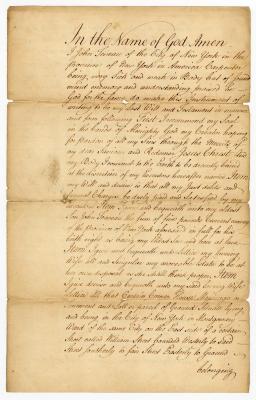 In the Name of God Amen
I John Teneure of the City of New York in the
province of New York in America Carpenter
being very Sick and weak in Body but of Sound
mind memory and understanding praised be
God for the same do make this Instrument of
writing to be my last Will and Testament in manner
and form following First I recommend my Soul
in the hands of Almighty God my Creator hoping
for pardon of all my Sins through the Merits of
my dear Saviour and Redeemer Jesus Christ and
my Body I recommend to the Earth to be decently buried
at the discretion of my Executors hereafter named Item
my Will and desire is that all my just debts and
funeral Charges be duly paid and Satisfied by my
Item I give and bequeath unto my Eldest
Son John the Sum of five pounds Current money
of the province of New York aforesaid in full for his
birth right as being my Eldest Son and heir at Law
Item I give and bequeath unto my loving
Wife all and Singular my moveable Estate to be at
her own disposal as she Shall think proper Item
I give devise and bequeath unto my Said loving Wife
all that Certain Corner House
and Lot or parcel of Ground Situate lying
and being in the City of New York in Montgomery
Ward of the same City on the East side of a certain
Street called William Street bounded Westerly by Said
Street Southerly by Easterly by Ground
belonging